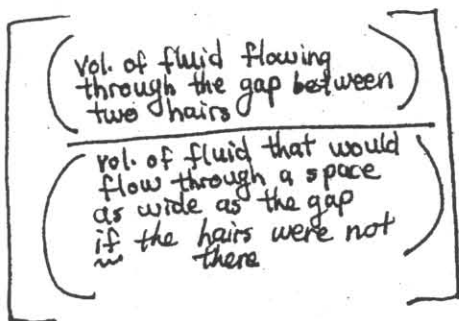 vol. of fluid flowing
through the gap between
two hairs
vol. of fluid that would
flow through a space
as wide as the gap
if the hairs were not
there